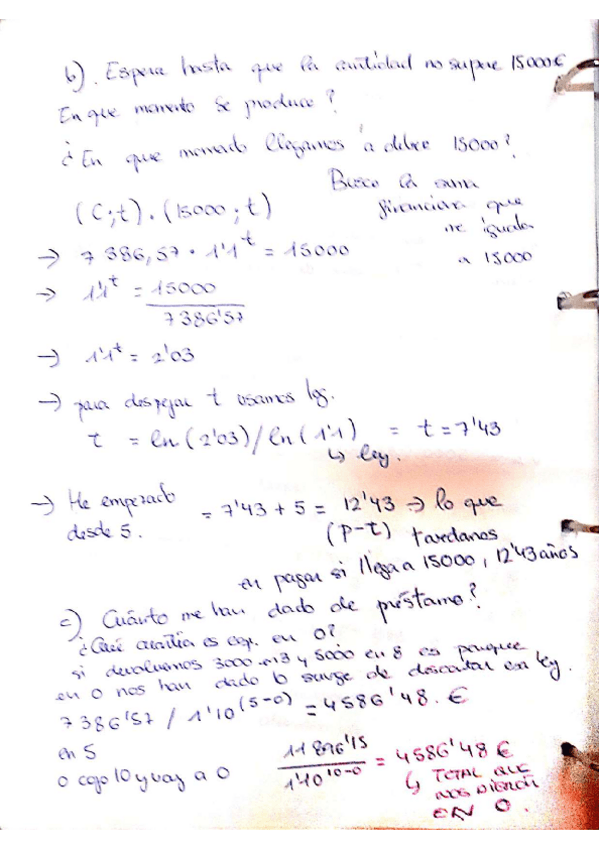 b). Espera hasta que la cantidad no supere 15000€
En que momento se produce?
¿En que momento llegamos a deber 15000?
Busco la suma
financiera que
me iguala
a 15000
(C;t) . (15000 ; t)
→ 7386,57 · 1'1^t = 15000
→ 1'1^t = 15000 / 7386'57
→ 1'1^t = 2'03
→ para despejar t usamos log.
t = ln(2'03)/ln(1'1) = t = 7'43
↳ ley.
→ He empezado desde 5. = 7'43 + 5 = 12'43 → lo que
(p-t) tardamos
en pagar si llega a 15000, 12'43 años
c) Cuánto me han dado de préstamo?
¿Qué cuantía es eq. en 0?
si devolvemos 3000 en 3 y 5000 en 8 es porque
en 0 nos han dado lo surge de descontar en ley.
7386'57 / 1'10^(5-0) = 4586'48. €
en 5
o cojo 10 y voy a 0
11896'15 / 1'10^10-0 = 4586'48 €
↳ TOTAL QUE
NOS DIERON
EN 0.